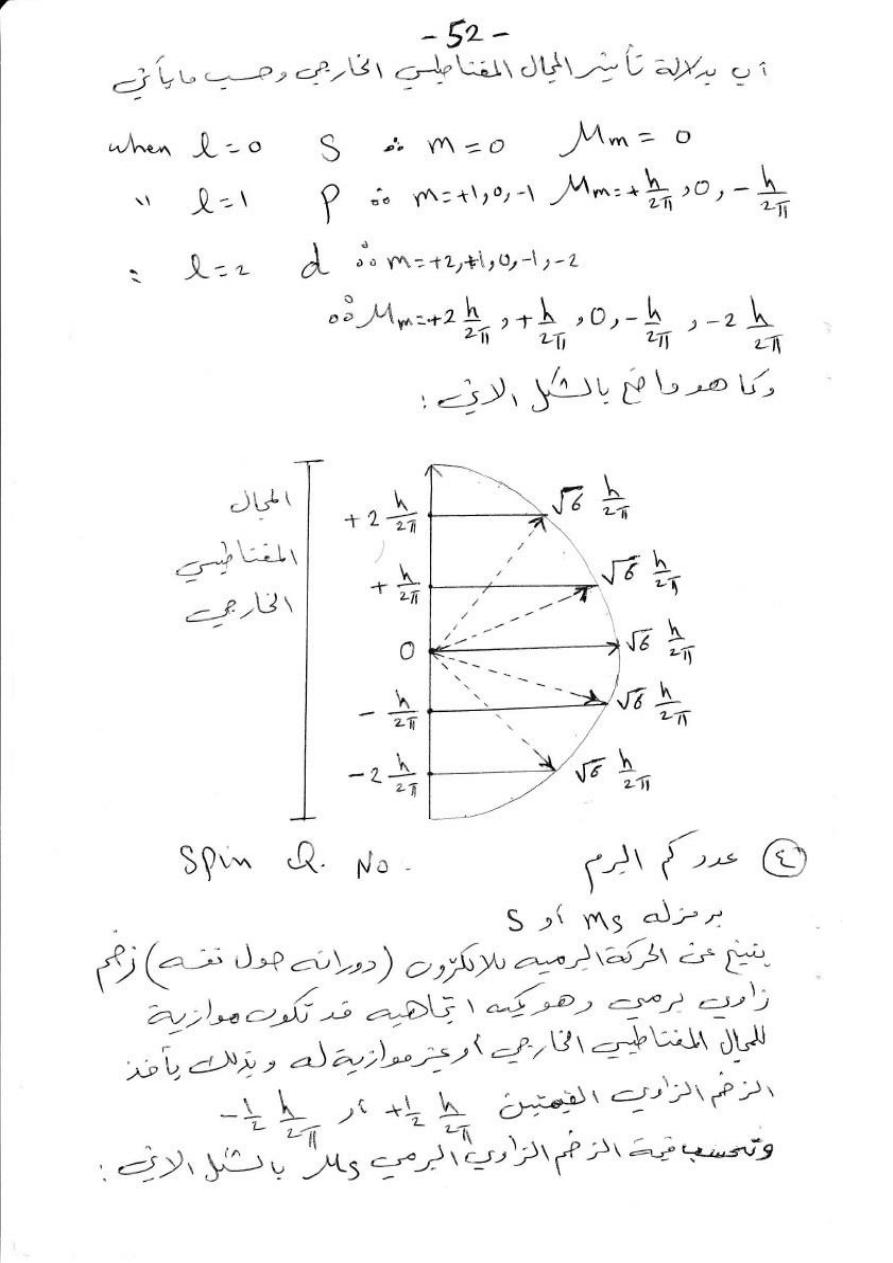 - 52 -
أي بدلالة تأثير المجال المغناطيسي الخارجي وحسب ما يأتي
when l = 0 S ∴ m = 0 Mm = 0
" l = 1 P ∴ m = +1, 0, -1 Mm = + h/2π, 0, - h/2π
= l = 2 d ∴ m = +2, +1, 0, -1, -2
∴ Mm = +2 h/2π, + h/2π, 0, - h/2π, -2 h/2π
وكما هو واضح بالشكل الاتي :
المجال
المغناطيسي
الخارجي
+2 h/2π √6 h/2π
+ h/2π √6 h/2π
0 √6 h/2π
- h/2π √6 h/2π
-2 h/2π √6 h/2π
٤ عدد كم البرم Spin Q. No.
يرمز له ms أو S
ينتج عن الحركة البرمية للالكترون (دورانه حول نفسه) زخم
زاوي برمي وهو يكون اتجاهين قد تكون موازية
للمجال المغناطيسي الخارجي أو غير موازية له وبذلك يأخذ
الزخم الزاوي القيمتين +½ h/2π أو -½ h/2π
وتحسب قيمة الزخم الزاوي البرمي Ms بالشكل الاتي :